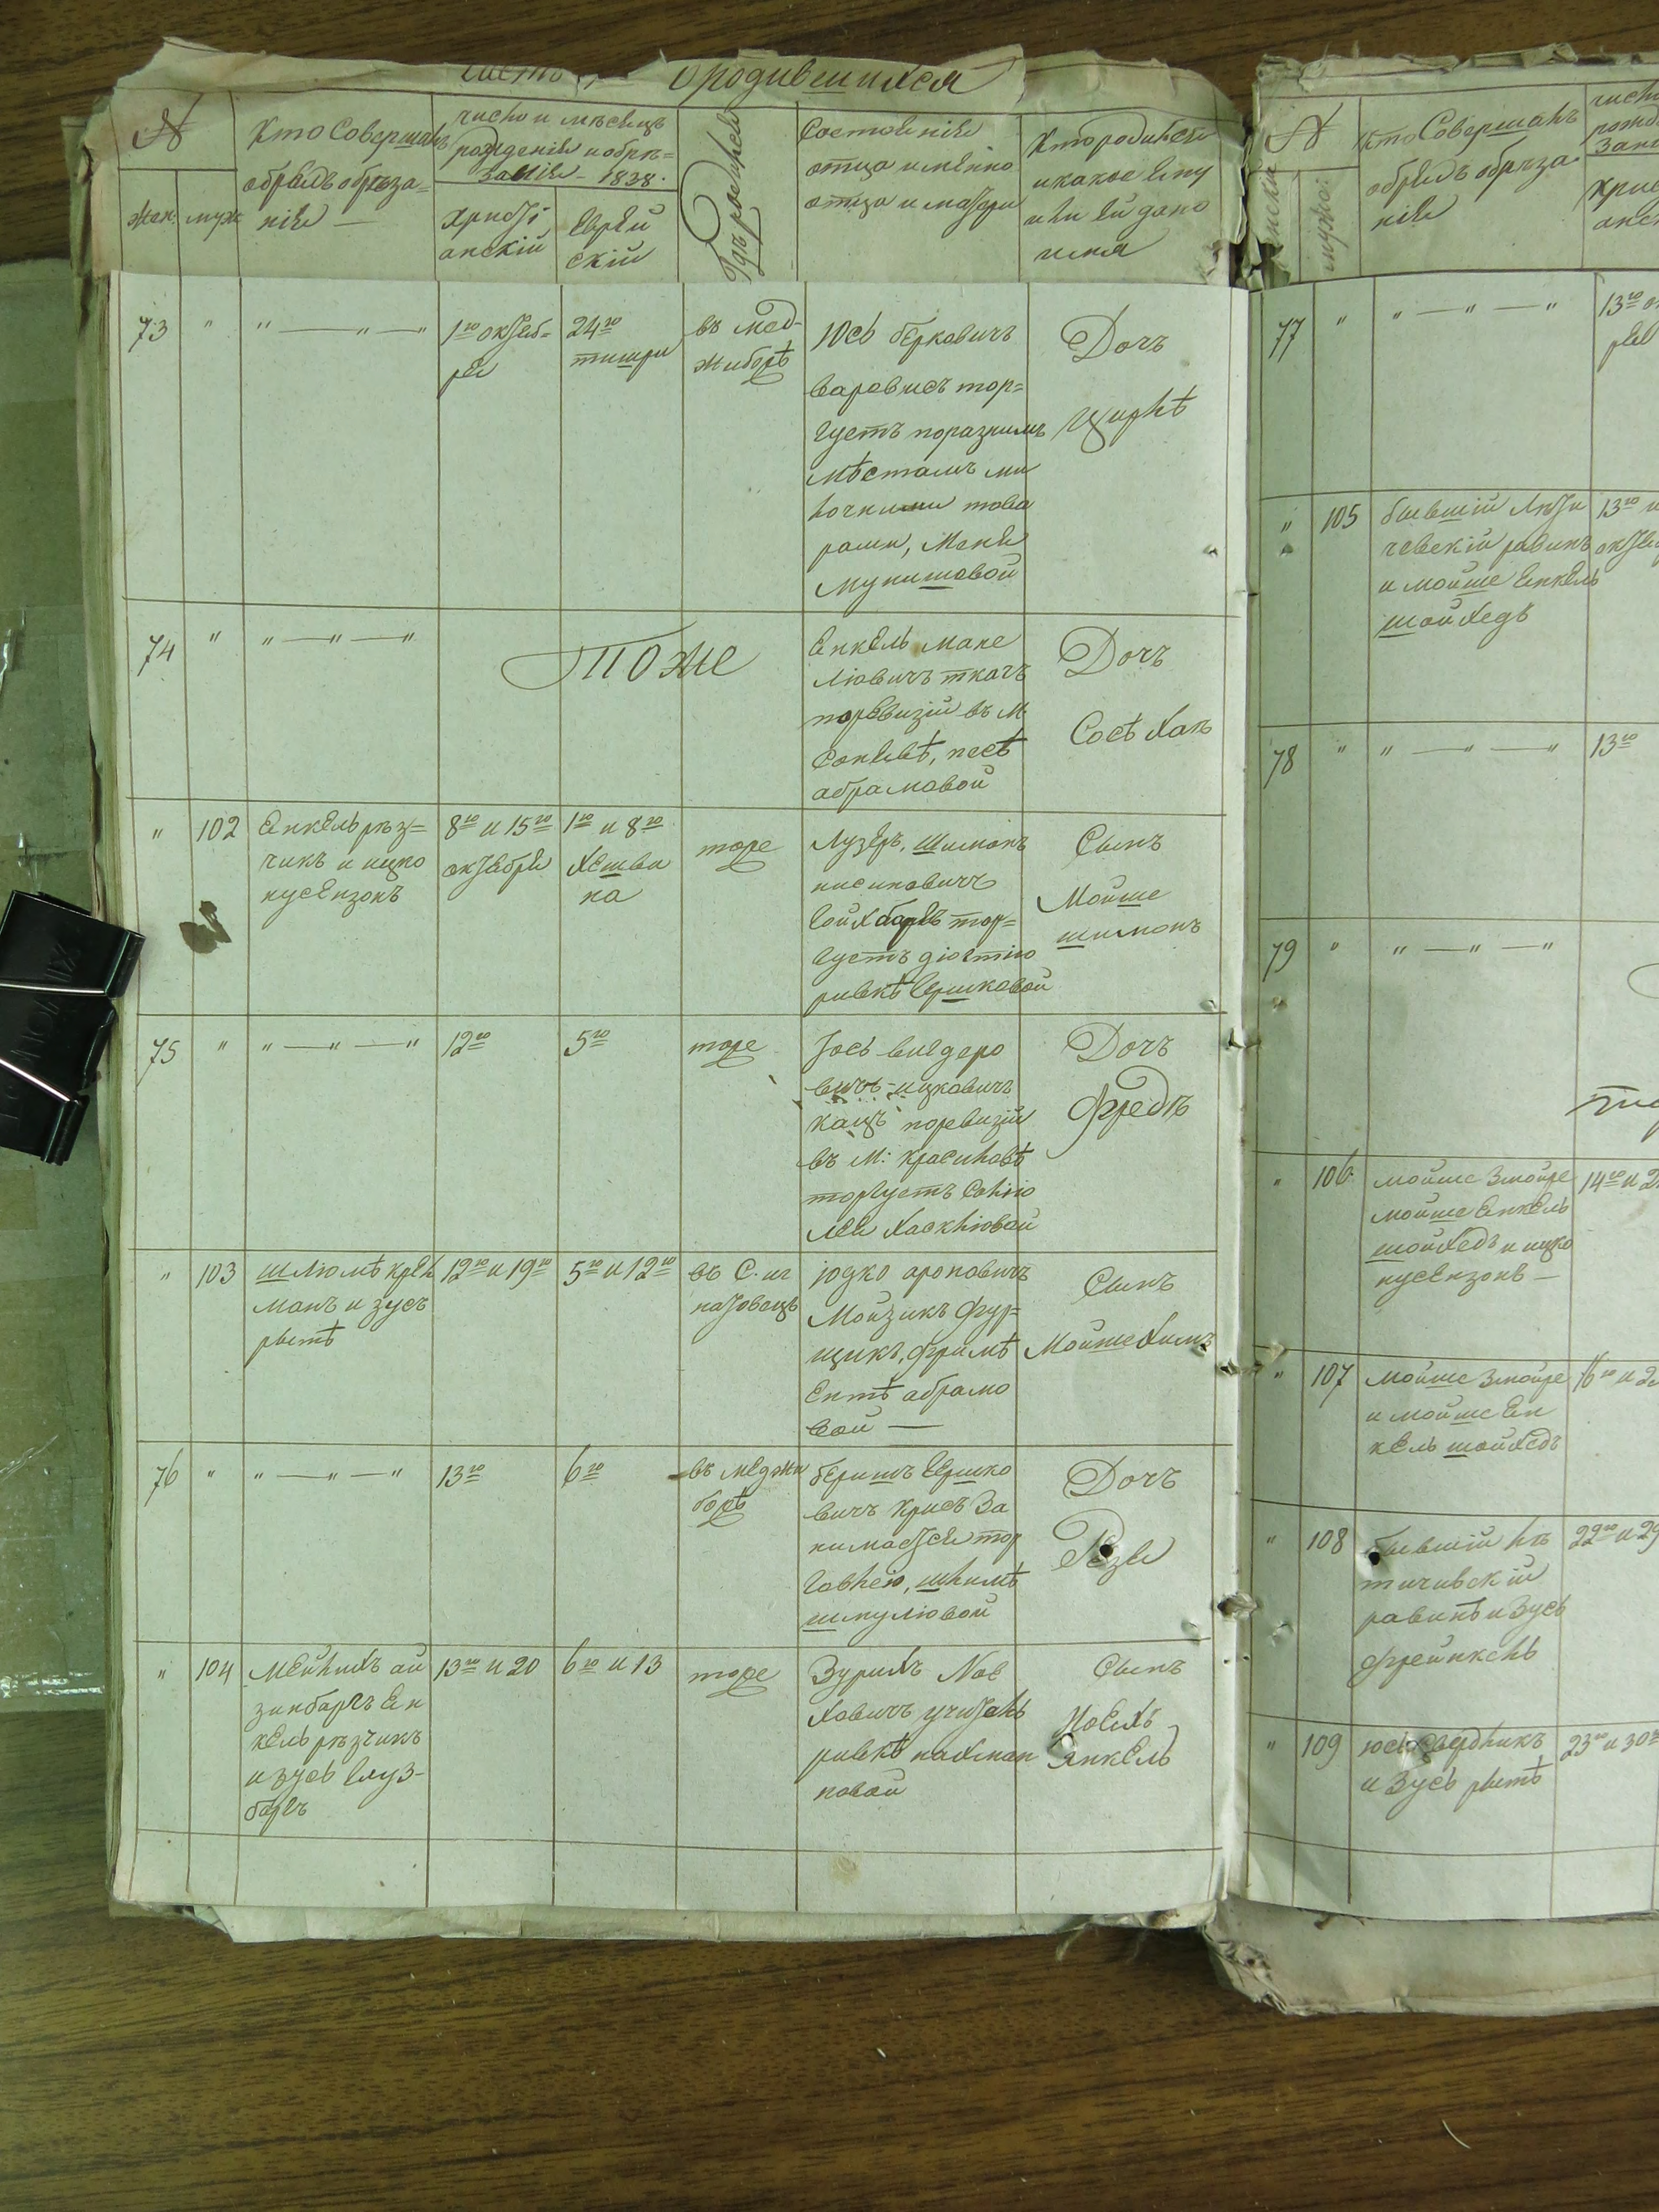 о родившихся
№
Кто Совершалъ
обрядъ обрѣза=
нія —
число и мѣсяцъ
рожденія и обрѣ=
занія – 1838.
Жен.
муж
христі
анскій
еврей
скій
Гдѣ родился
Состояніе
отца имянно
отца и матери
Кто родился
и какое ему
или ей дано
имя
73 " " — " — "
1го октяб=
ря
24го
тишри
въ мед-
жибожѣ
Юсь берковичъ
торгуетъ по разнимъ
мѣстамъ ми
лочними това
рами, Маня
мунишовой
Дочъ
Цирлѣ
74 " " — " — "
Тоже
Енкель мане
лювичъ ткачъ
по ревизіи въ м.
песѣ
абрамовой
Дочъ
Сосѣ Хаѣ
" 102
Енкель рѣз=
чикъ и ицко
нусензонъ
8го и 15го
октября
1го и 8го
Хешва
на
тоже
Лузеръ, Шимонъ
нисиновичъ
тор=
гуетъ дютію
ривкѣ гершковой
Сынъ
Мойше
шимонъ
75 " " — " — "
12го
5го
тоже
Іось вигдеро
вичъ-ицковичъ
кацъ по ревизіи
въ м: красиловѣ
торгуетъ солію
леи Хаскліовой
Дочъ
Фредѣ
" 103
шліомѣ крел
манъ и зусъ
рытѣ
12го и 19го
5го и 12го
въ С. иг
натовацѣ
юдко ароновичъ
Мойзикъ фур=
щикъ, фримѣ
ентѣ абрамо
вой —
Сынъ
Мойше Химъ
76 " " — " — "
13го
6го
въ меджи
божѣ
беришъ гершко
вичъ крисъ за
нимаетъся тор
говлею, шлимѣ
шмуліовой
Дочъ
Рейзя
" 104
Мейлихъ ай
зинбаргъ Ен
кель рѣзчикъ
и зусь глуз-
баргъ
13го и 20
6го и 13
тоже
Зурихъ Ное
ховичъ учитель
ривкѣ нахман
новой
Сынъ
Ноехъ
Янкель
№
Кто Совершалъ
обрядъ обрѣза
нія
77 " " — " — "
13го
" 105
бывшій Лѣти
чевскій равинъ
и мойше Енкель
шойхедъ
13го
78 " " — " — "
13го
79 " " — " — "
" 106
мойше змойре
мойше Енкель
шойхедъ и ицко
нусензонъ —
14го и 2
" 107
мойше змойре
и мойше Ен
кель шойхедъ
16го и 2
" 108
бывшій лѣ
тичивскій
равинъ и Зусь
френкель
22го и 29
" 109
юсь свердликъ
и Зусь рытѣ
23го и 30го